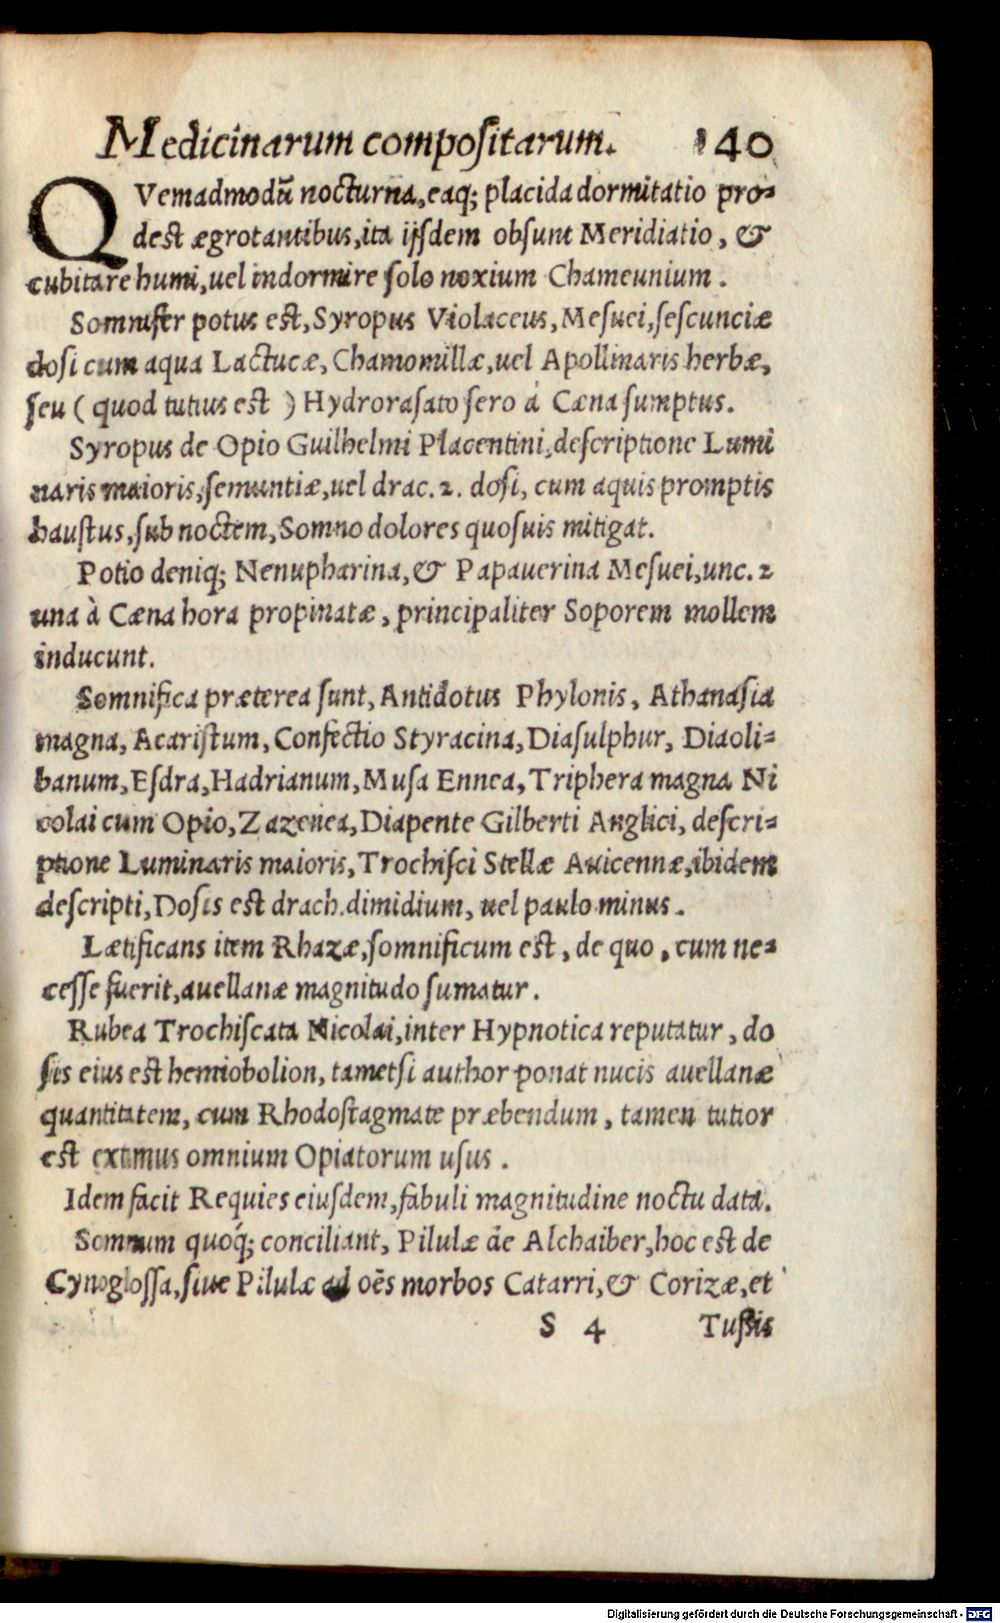 Medicinarum compositarum. 140
QVemadmodū nocturna, eaq; placida dormitatio pro-
dest ægrotantibus, ita ijſdem obſunt Meridiatio, &
cubitare humi, uel indormire ſolo noxium Chameunium.
Somnifer potus est, Syropus Violaceus, Meſuei, ſeſcunciæ
doſi cum aqua Lactucæ, Chamomillæ, uel Apollinaris herbæ,
ſeu ( quod tutius est ) Hydroraſato ſero à Cæna ſumptus.
Syropus de Opio Guilhelmi Placentini, deſcriptione Lumi
naris maioris, ſemuntiæ, uel drac. 2. doſi, cum aquis promptis
hauſtus, ſub noctem, Somno dolores quoſuis mitigat.
Potio deniq; Nenupharina, & Papauerina Meſuei, unc. 2
una à Cæna hora propinatæ, principaliter Soporem mollem
inducunt.
Somnifica præterea ſunt, Antidotus Phylonis, Athanaſia
magna, Acariſtum, Confectio Styracina, Diaſulphur, Diaoli-
banum, Eſdra, Hadrianum, Muſa Ennea, Triphera magna Ni
colai cum Opio, Zazenea, Diapente Gilberti Anglici, deſcri-
ptione Luminaris maioris, Trochiſci Stellæ Auicennæ, ibidem
deſcripti, Doſis est drach. dimidium, uel paulo minus.
Lætificans item Rhazæ, ſomnificum est, de quo, cum ne-
ceſſe fuerit, auellanæ magnitudo ſumatur.
Rubea Trochiſcata Nicolai, inter Hypnotica reputatur, do
ſis eius est hemiobolion, tametſi author ponat nucis auellanæ
quantitatem, cum Rhodoſtagmate præbendum, tamen tutior
est extimus omnium Opiatorum uſus.
Idem facit Requies eiuſdem, fabuli magnitudine noctu data.
Somnum quóq; conciliant, Pilulæ āe Alchaiber, hoc est de
Cynogloſſa, ſiue Pilulæ ad oēs morbos Catarri, & Corizæ, et
S 4 Tuſsis
Digitalisierung gefördert durch die Deutsche Forschungsgemeinschaft - DFG